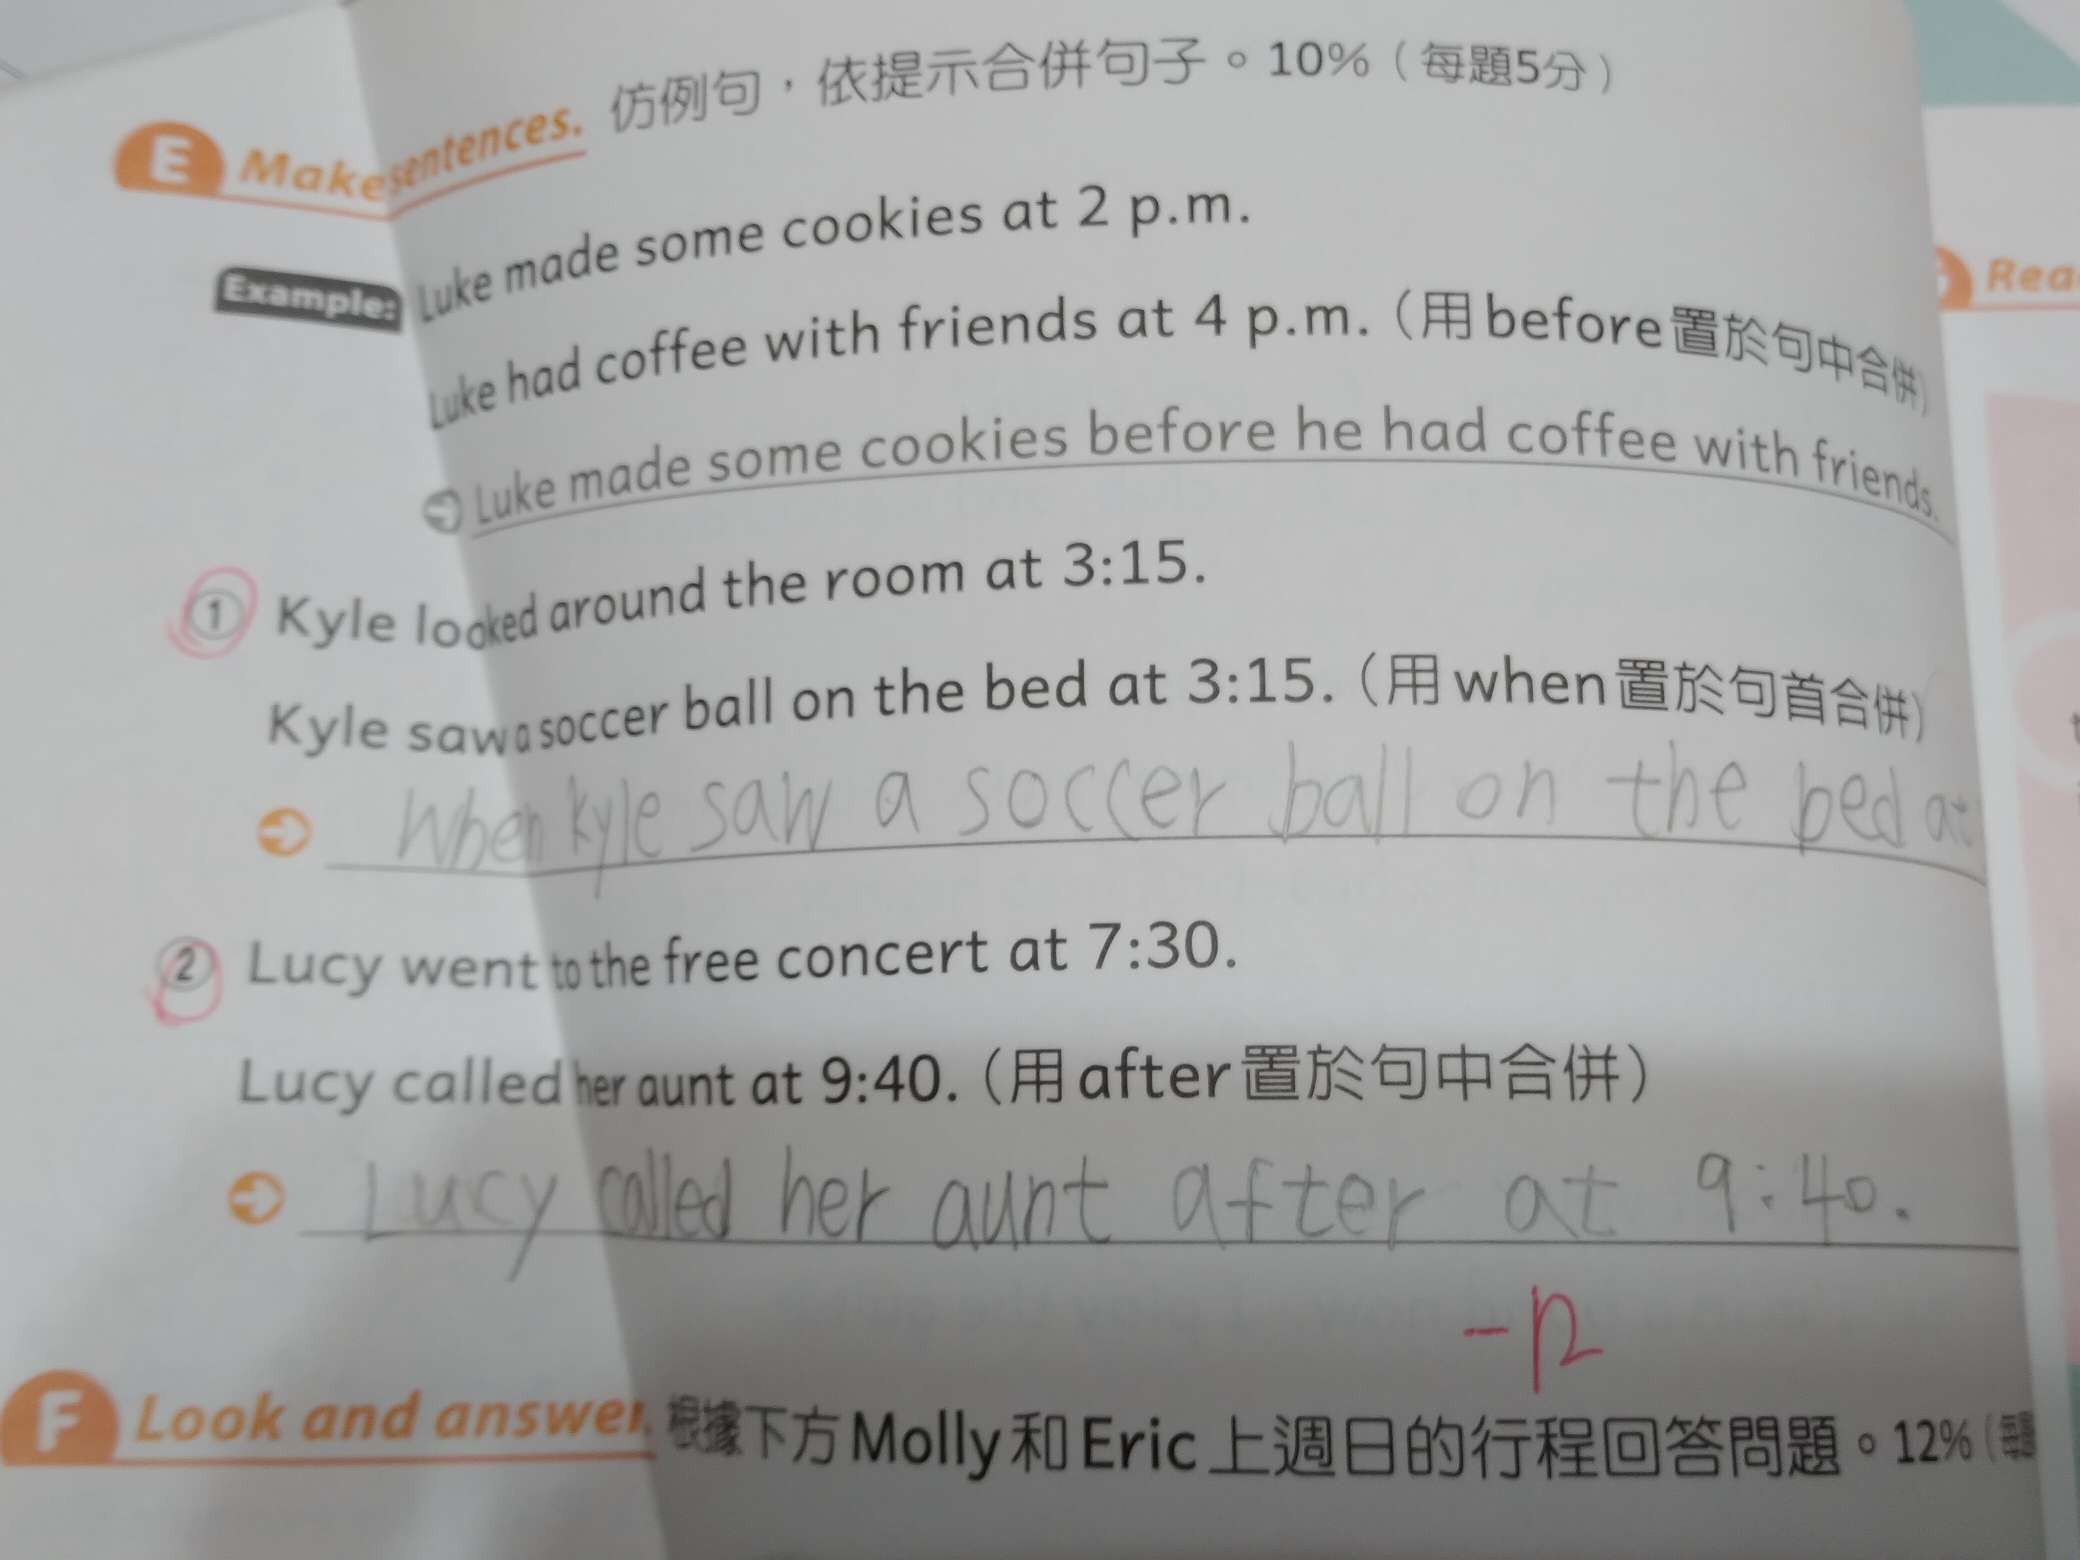 E Make sentences. 仿例句，依提示合併句子。10%（每題5分）
Example: Luke made some cookies at 2 p.m.
Luke had coffee with friends at 4 p.m.（用before置於句中合併）
Luke made some cookies before he had coffee with friends.
Rea
① Kyle looked around the room at 3:15.
Kyle saw a soccer ball on the bed at 3:15.（用when置於句首合併）
When kyle saw a soccer ball on the bed at
② Lucy went to the free concert at 7:30.
Lucy called her aunt at 9:40.（用after置於句中合併）
Lucy called her aunt after at 9:40.
F Look and answer. 根據下方Molly和Eric上週日的行程回答問題。12%（